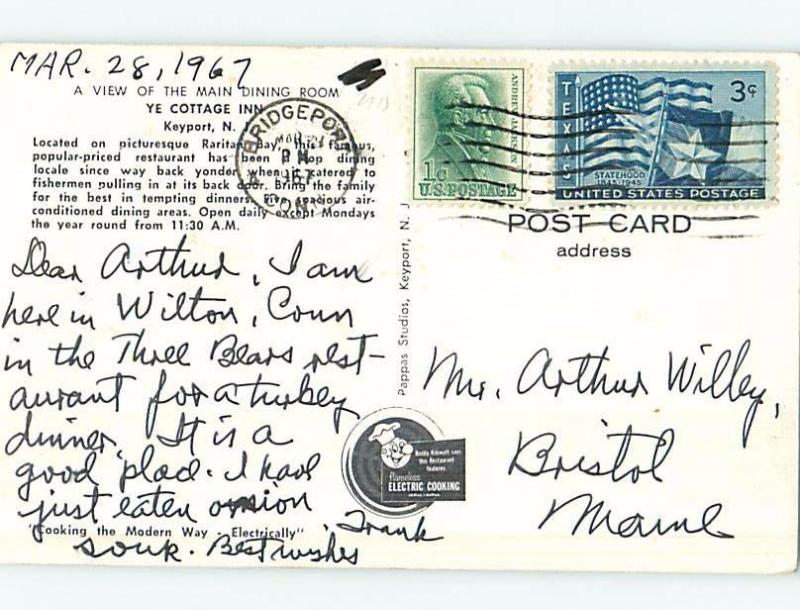 MAR. 28, 1967
A VIEW OF THE MAIN DINING ROOM
YE COTTAGE INN
Keyport, N.
Located on picturesque Raritan Bay, this famous,
popular-priced restaurant has been a top dining
locale since way back yonder when it catered to
fishermen pulling in at its back door. Bring the family
for the best in tempting dinners. Five spacious air-
conditioned dining areas. Open daily except Mondays
the year round from 11:30 A.M.
Dear Arthur, I am
here in Wilton, Conn
in the Three Bears rest-
aurant for a turkey
dinner. It is a
good place. I had
just eaten onion
souk. Best wishes
Frank
"Cooking the Modern Way - Electrically"
BRIDGEPORT
MAR
PM
1967
CONN
ANDREW JACKSON
1¢
U.S. POSTAGE
TEXAS
3¢
STATEHOOD
1845-1945
UNITED STATES POSTAGE
POST CARD
address
Pappas Studios, Keyport, N. J
Mr. Arthur Willey,
Bristol
Maine
Reddy Kilowatt says
this Restaurant
features
flameless
ELECTRIC COOKING